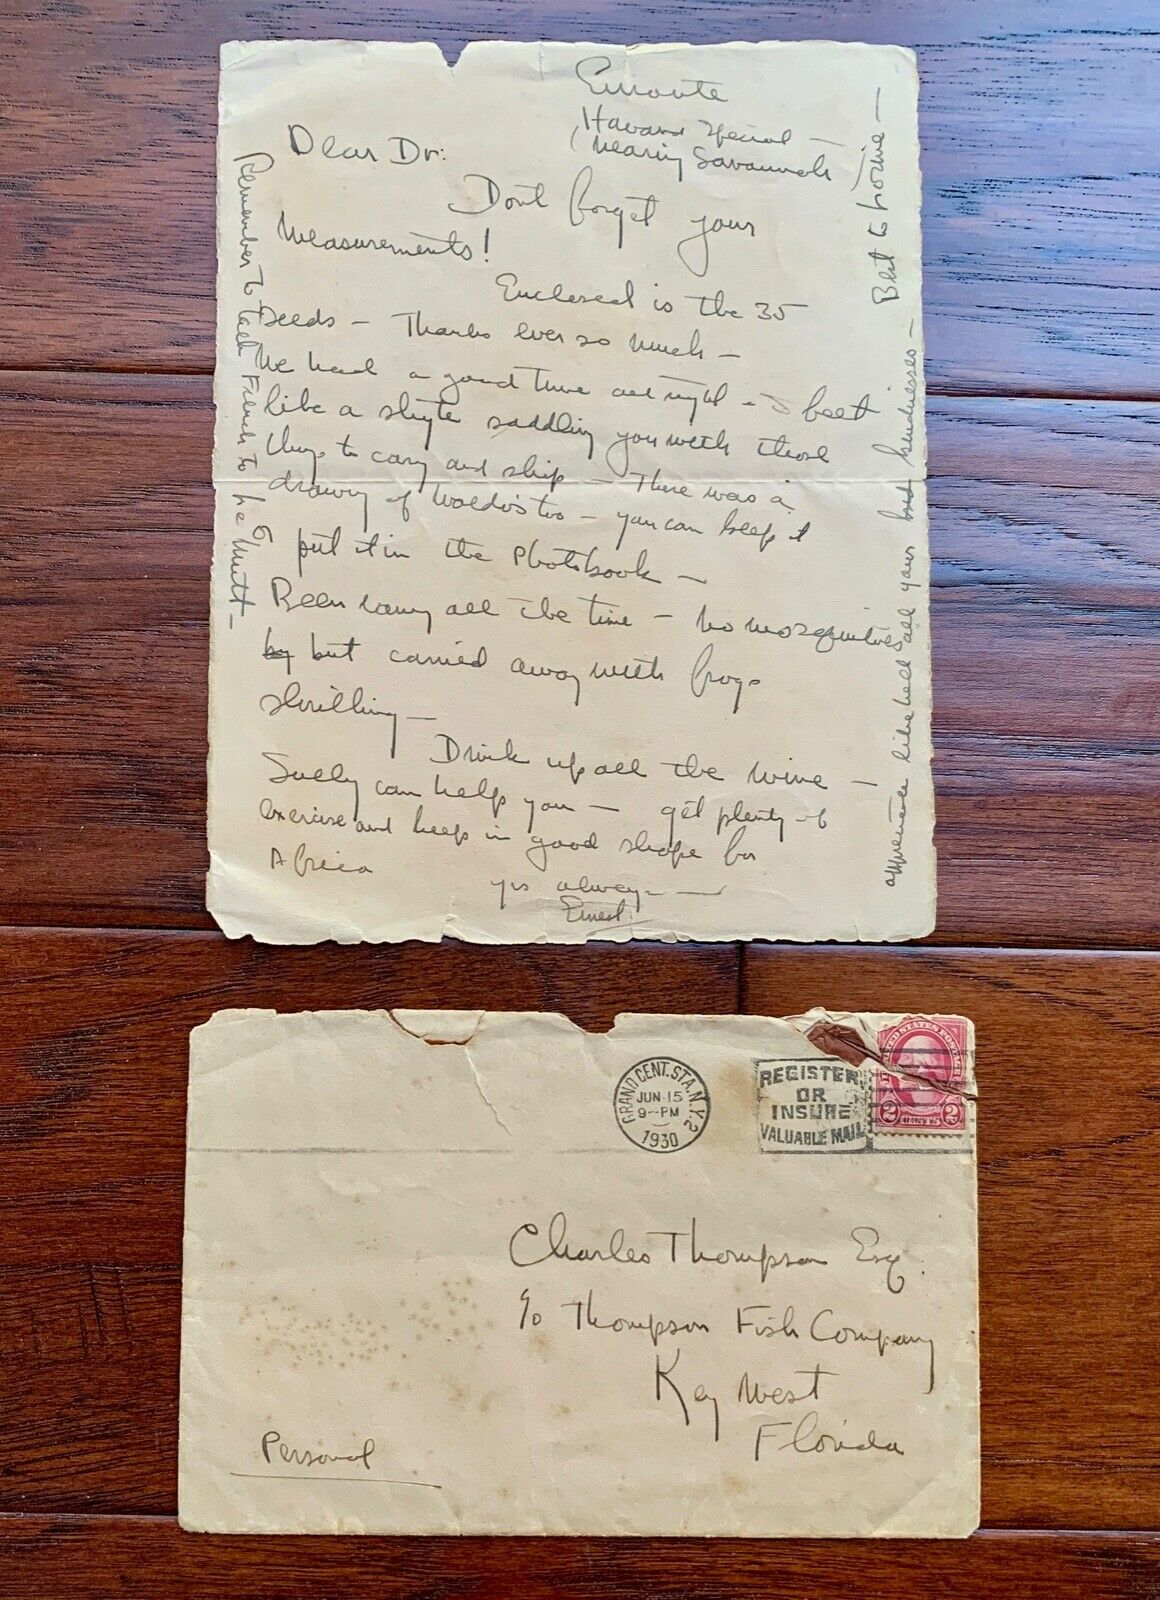 Enroute
Havana Special —
(Nearing Savannah)
Dear Dr:
Dont forget your
Measurements!
Enclosed is the 35
— Thanks ever so much —
We had a good time all right — I feel
like a saddling you with those
things to carry and ship — There was a
drawing of Waldo's too — you can keep it
put it in the Photobook —
Been rainy all the time — No mosquitoes
by but carried away with frogs
shrilling —
Drink up all the wine —
Sully can help you — get plenty of
exercise and keep in good shape for
Africa
yrs always —
Ernest
appreciate like hell all your kindnesses — Best to Lorine —
Remember to tell French to be —
GRAND CENT. STA. N.Y. 2
JUN 15
9-PM
1930
REGISTER
OR
INSURE
VALUABLE MAIL
UNITED STATES POSTAGE
2 CENTS 2
Charles Thompson Esq.
c/o Thompson Fish Company
Key West
Florida
Personal